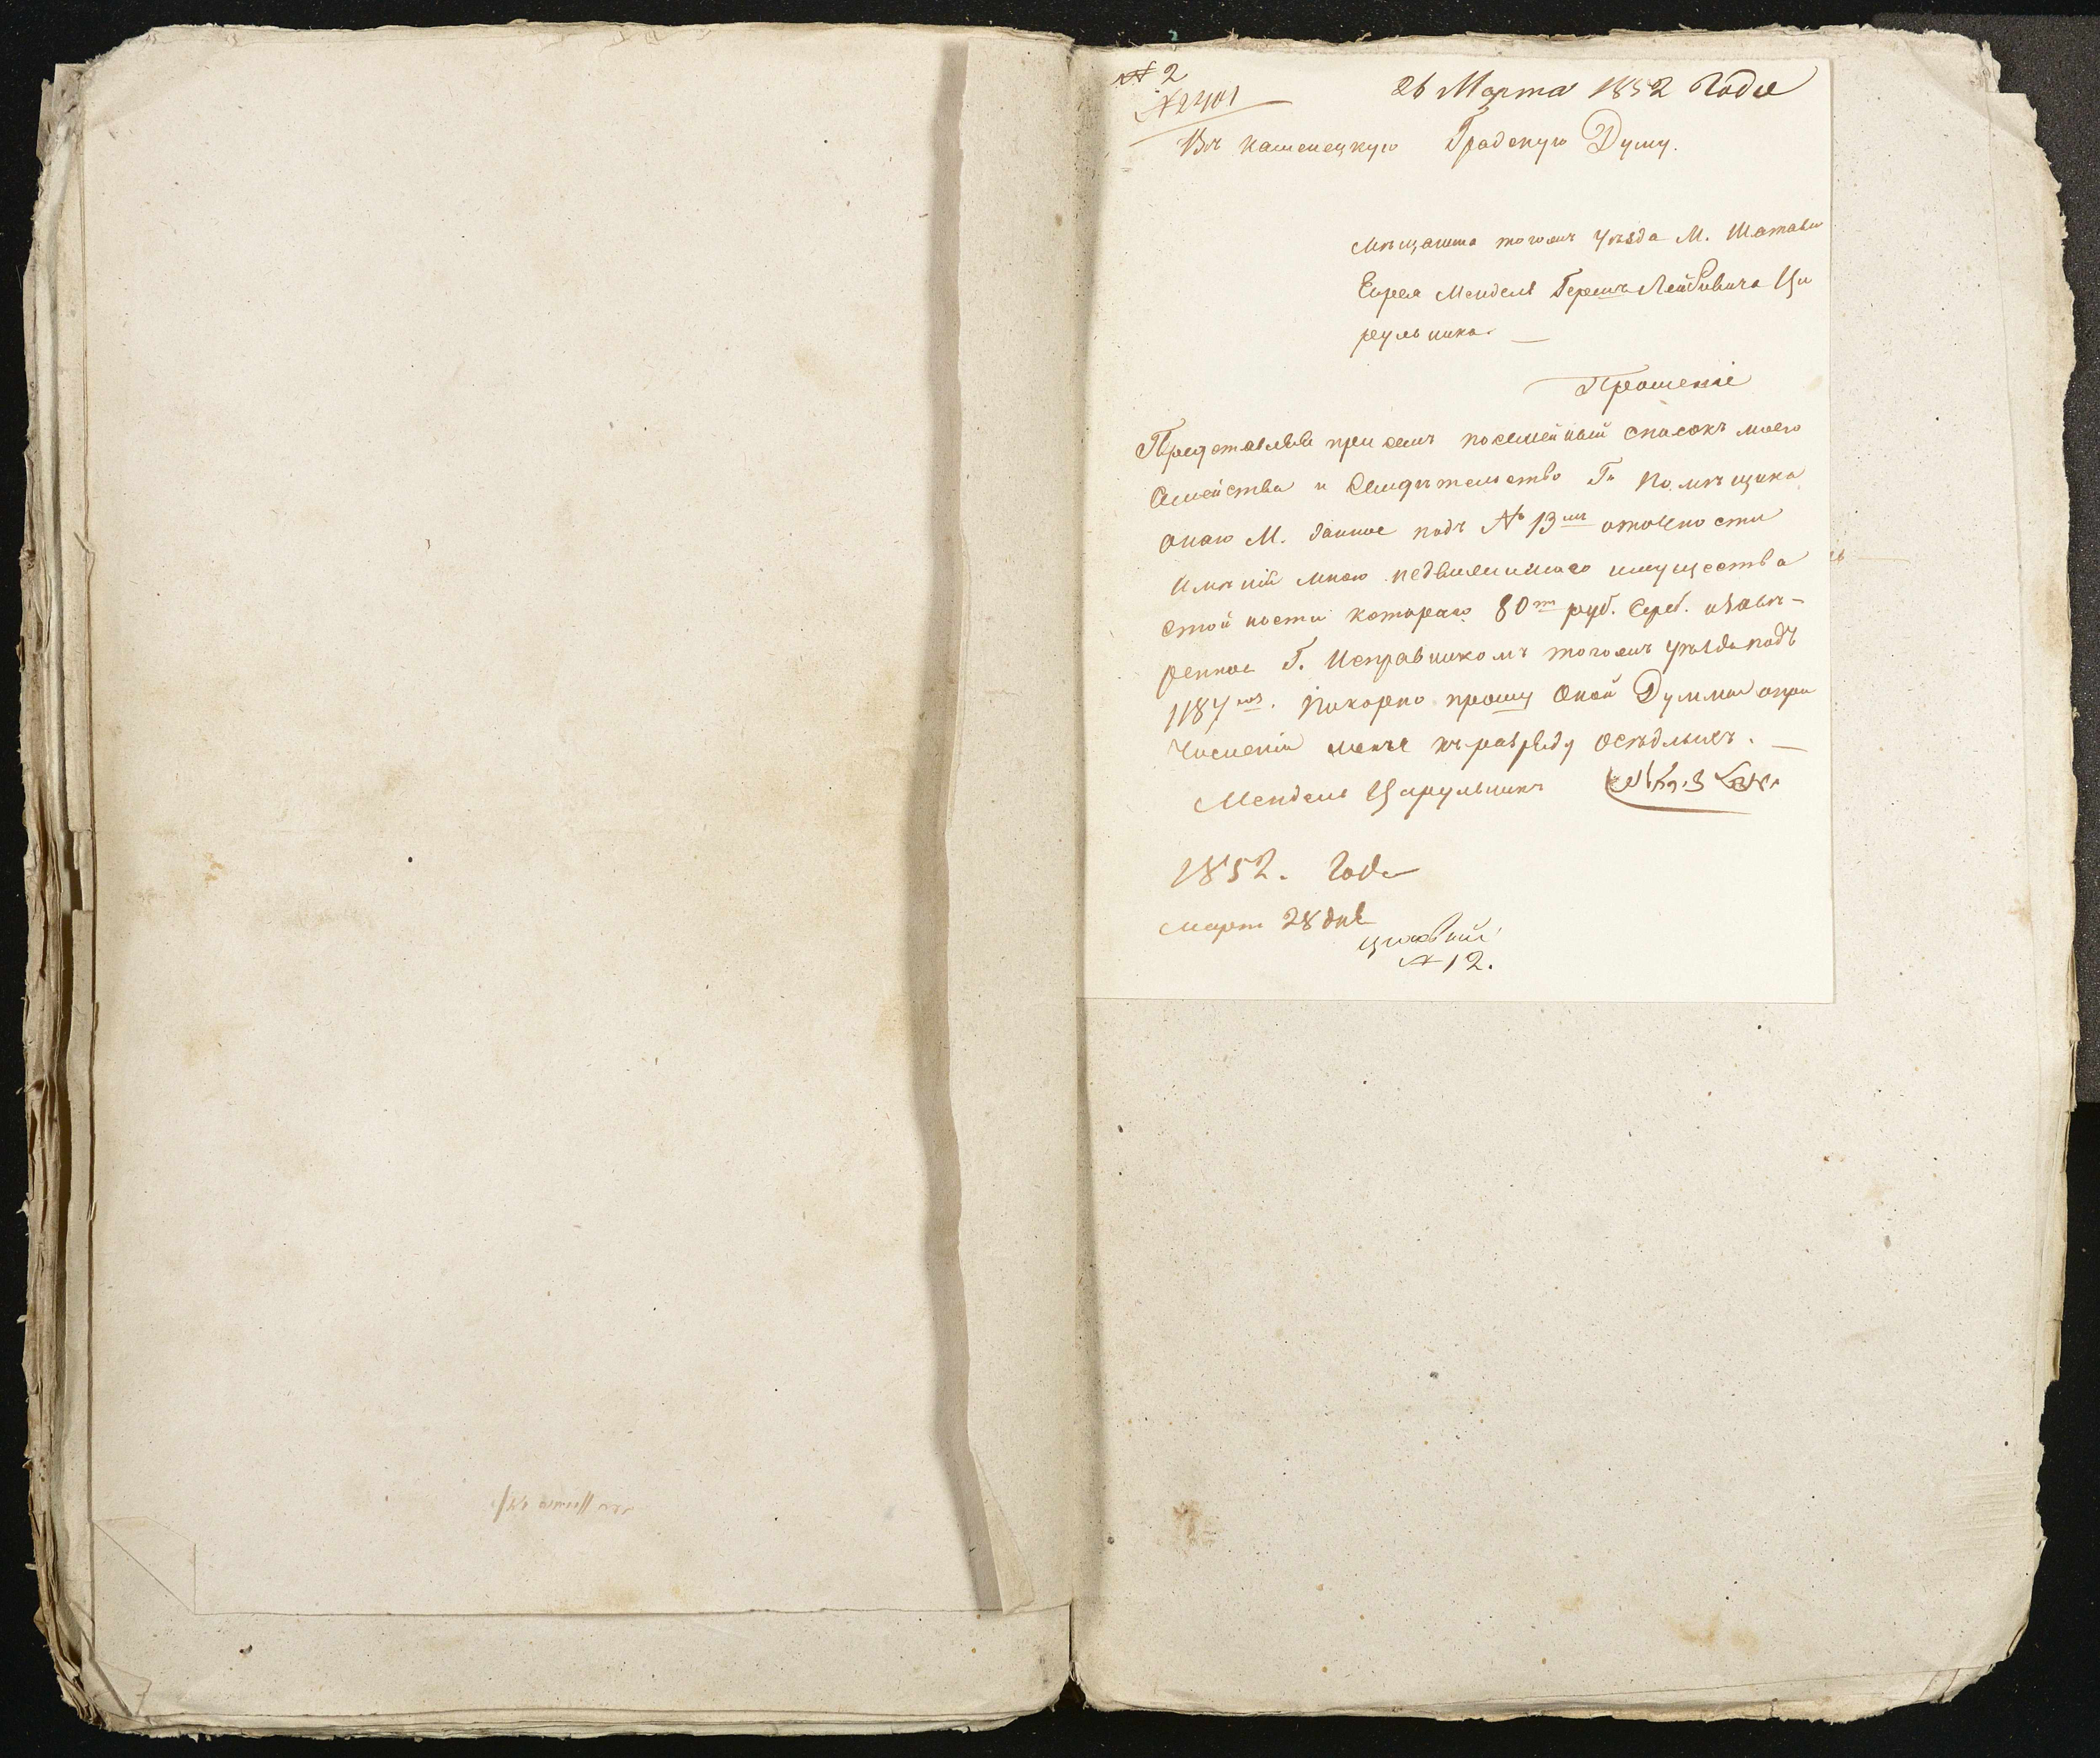 № 2
№ 2401
26 Марта 1852 Года
Въ Каменецкую Градскую Думу.
Мѣщанина тогожъ Уѣзда М. Шатавы
Еврея Мендель Гершъ Лейбовича Ци
рульника. —
Прошеніе
Представляя при семъ посемейный списокъ моего
Семейства и Свидѣтельство Гн Помѣщика
онаго М. данное подъ № 13мъ
имѣній мною недвижимаго имущества
стойности котораго 80тъ руб. Сереб.
ренное Г. Исправникомъ тогожъ Уѣзда подъ
1187мъ. Покорно прошу Оной Думмы опри
численіи мене къ разряду осѣдлыхъ. —
Мендель Цирульникъ
1852. Года
март 28 дня
№ 12.